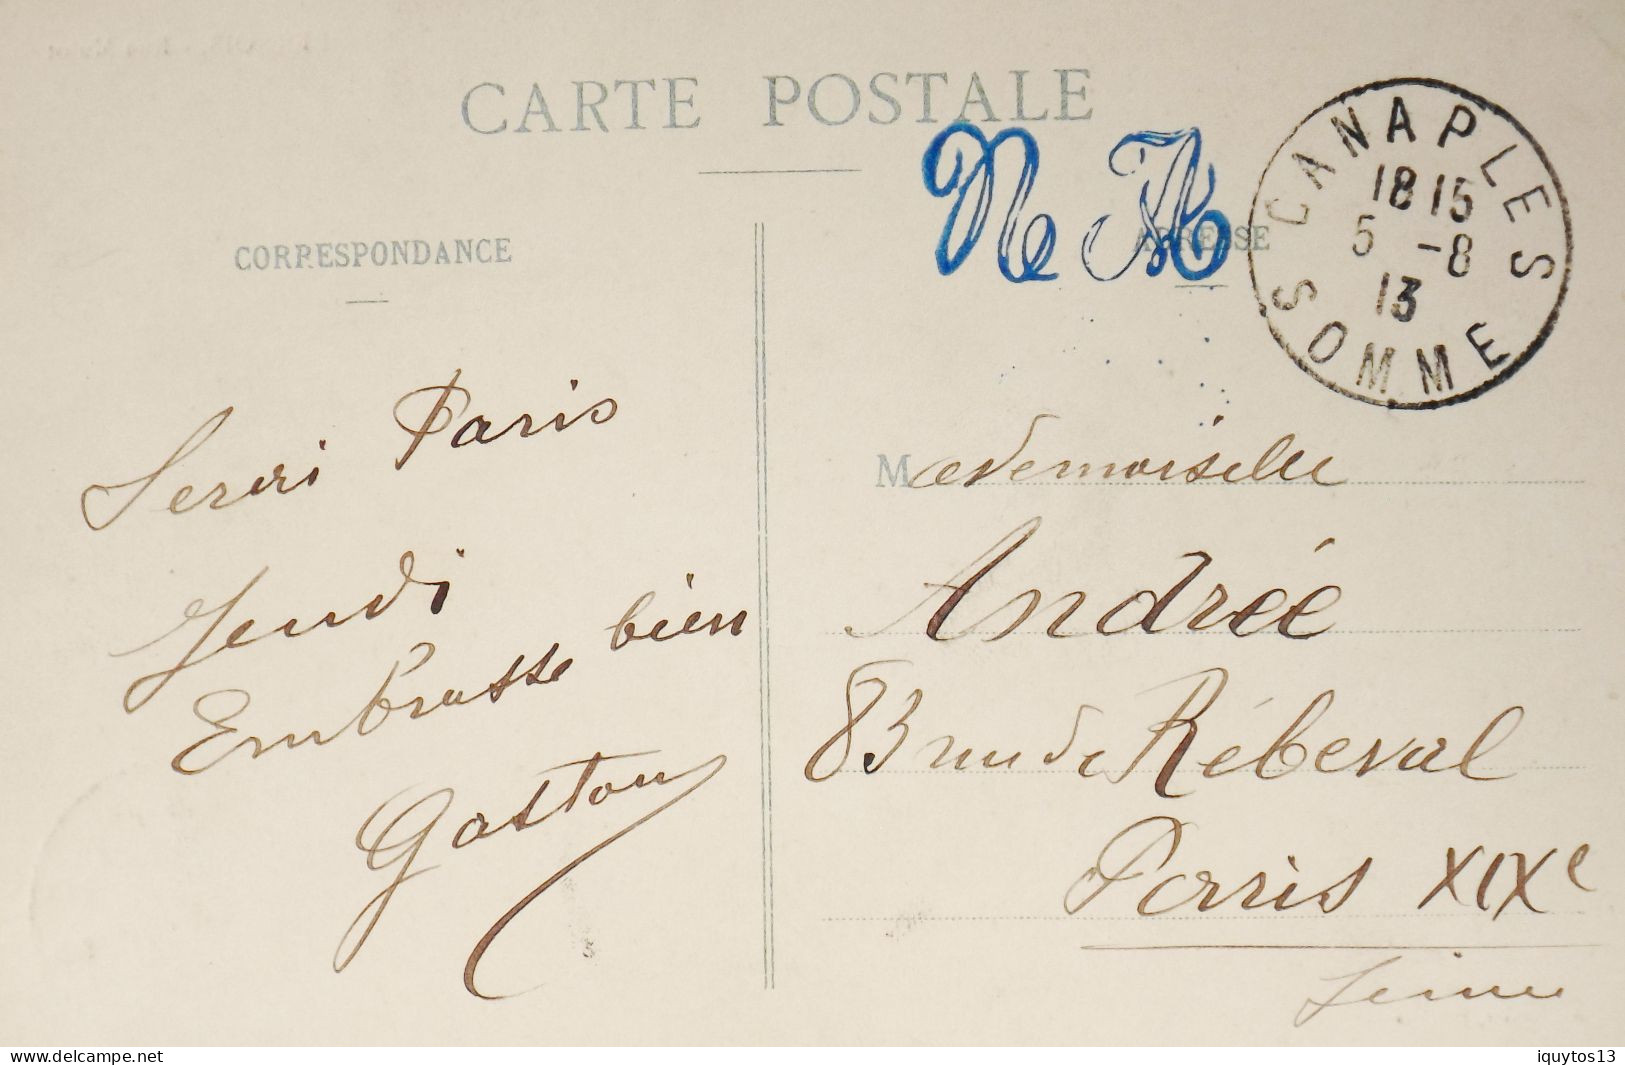 CARTE POSTALE
CORRESPONDANCE
ADRESSE
CANAPLES
18 15
5 -8
13
SOMME
Serai Paris
Jeudi
Embrasse bien
Gaston
Mademoiselle
Andrée
83 rue de Rébeval
Paris XIXe
Seine
delcampe.net
iquytos13